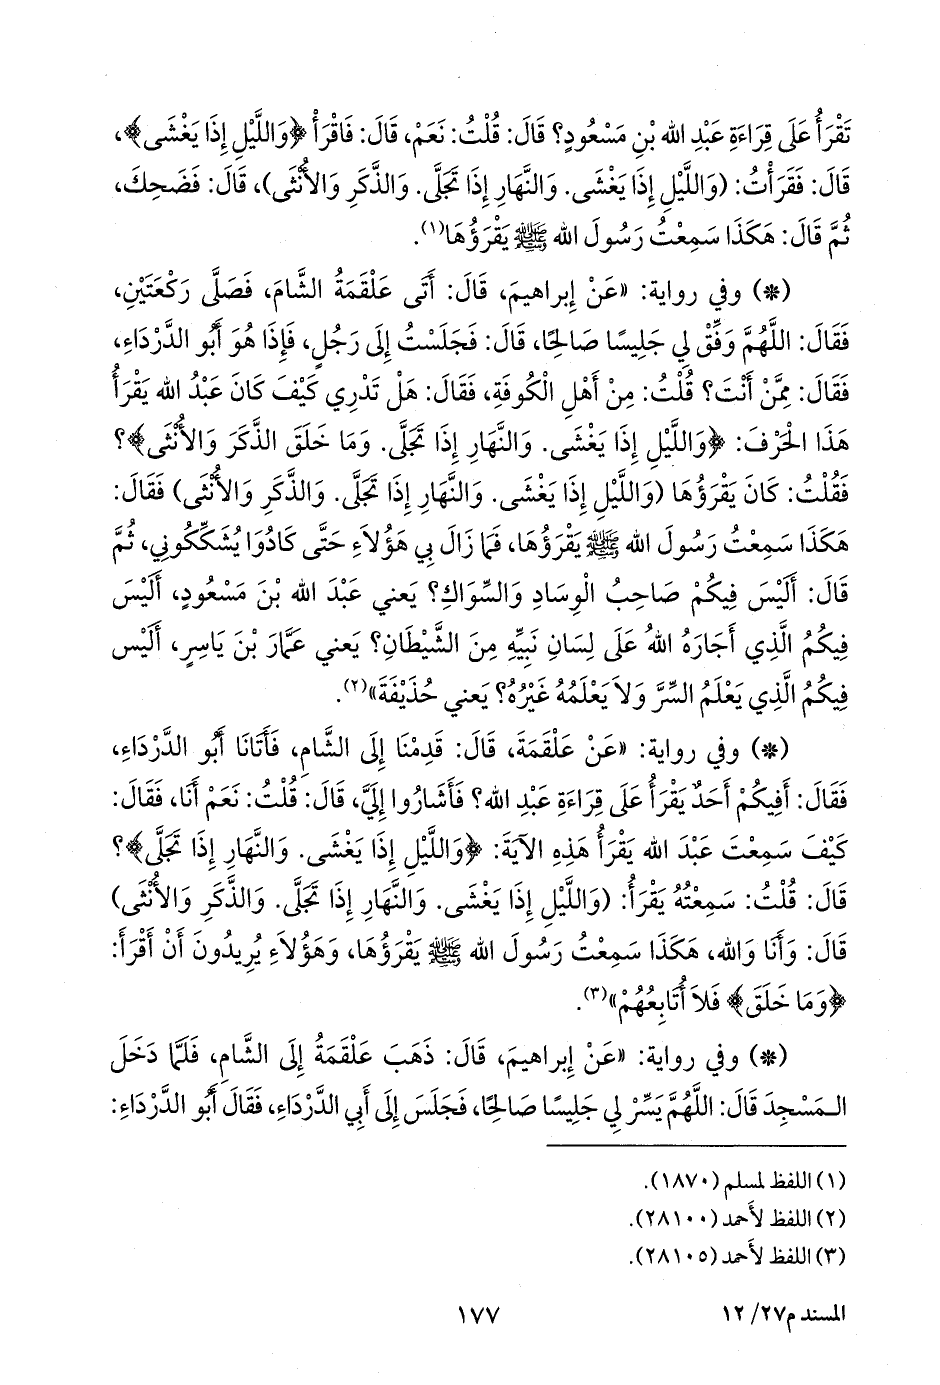 تَقْرَأُ عَلَى قِرَاءَةِ عَبْدِ الله بْنِ مَسْعُودٍ؟ قَالَ: قُلْتُ: نَعَمْ، قَالَ: فَاقْرَأْ ﴿وَاللَّيْلِ إِذَا يَغْشَى﴾،
قَالَ: فَقَرَأْتُ: (وَاللَّيْلِ إِذَا يَغْشَى. وَالنَّهَارِ إِذَا تَجَلَّى. وَالذَّكَرِ وَالأُنْثَى)، قَالَ: فَضَحِكَ،
ثُمَّ قَالَ: هَكَذَا سَمِعْتُ رَسُولَ الله ﷺ يَقْرَؤُهَا(١).
(*) وفي رواية: «عَنْ إِبراهيمَ، قَالَ: أَتَى عَلْقَمَةُ الشَّامَ، فَصَلَّى رَكْعَتَيْنِ،
فَقَالَ: اللَّهُمَّ وَفِّقْ لِي جَلِيسًا صَالِحًا، قَالَ: فَجَلَسْتُ إِلَى رَجُلٍ، فَإِذَا هُوَ أَبُو الدَّرْدَاءِ،
فَقَالَ: مِمَّنْ أَنْتَ؟ قُلْتُ: مِنْ أَهْلِ الْكُوفَةِ، فَقَالَ: هَلْ تَدْرِي كَيْفَ كَانَ عَبْدُ الله يَقْرَأُ
هَذَا الْحَرْفَ: ﴿وَاللَّيْلِ إِذَا يَغْشَى. وَالنَّهَارِ إِذَا تَجَلَّى. وَمَا خَلَقَ الذَّكَرَ وَالأُنْثَى﴾؟
فَقُلْتُ: كَانَ يَقْرَؤُهَا (وَاللَّيْلِ إِذَا يَغْشَى. وَالنَّهَارِ إِذَا تَجَلَّى. وَالذَّكَرِ وَالأُنْثَى) فَقَالَ:
هَكَذَا سَمِعْتُ رَسُولَ الله ﷺ يَقْرَؤُهَا، فَمَا زَالَ بِي هَؤُلاَءِ حَتَّى كَادُوا يُشَكِّكُونِي، ثُمَّ
قَالَ: أَلَيْسَ فِيكُمْ صَاحِبُ الْوِسَادِ وَالسِّوَاكِ؟ يَعني عَبْدَ الله بْنَ مَسْعُودٍ، أَلَيْسَ
فِيكُمُ الَّذِي أَجَارَهُ اللهُ عَلَى لِسَانِ نَبِيِّهِ مِنَ الشَّيْطَانِ؟ يَعني عَمَّارَ بْنَ يَاسِرٍ، أَلَيْسَ
فِيكُمُ الَّذِي يَعْلَمُ السِّرَّ وَلاَ يَعْلَمُهُ غَيْرُهُ؟ يَعني حُذَيْفَةَ»(٢).
(*) وفي رواية: «عَنْ عَلْقَمَةَ، قَالَ: قَدِمْنَا إِلَى الشَّامِ، فَأَتَانَا أَبُو الدَّرْدَاءِ،
فَقَالَ: أَفِيكُمْ أَحَدٌ يَقْرَأُ عَلَى قِرَاءَةِ عَبْدِ الله؟ فَأَشَارُوا إِلَيَّ، قَالَ: قُلْتُ: نَعَمْ أَنَا، فَقَالَ:
كَيْفَ سَمِعْتَ عَبْدَ الله يَقْرَأُ هَذِهِ الآيَةَ: ﴿وَاللَّيْلِ إِذَا يَغْشَى. وَالنَّهَارِ إِذَا تَجَلَّى﴾؟
قَالَ: قُلْتُ: سَمِعْتُهُ يَقْرَأُ: (وَاللَّيْلِ إِذَا يَغْشَى. وَالنَّهَارِ إِذَا تَجَلَّى. وَالذَّكَرِ وَالأُنْثَى)
قَالَ: وَأَنَا وَالله، هَكَذَا سَمِعْتُ رَسُولَ الله ﷺ يَقْرَؤُهَا، وَهَؤُلاَءِ يُرِيدُونَ أَنْ أَقْرَأَ:
﴿وَمَا خَلَقَ﴾ فَلاَ أُتَابِعُهُمْ»(٣).
(*) وفي رواية: «عَنْ إِبراهيمَ، قَالَ: ذَهَبَ عَلْقَمَةُ إِلَى الشَّامِ، فَلَمَّا دَخَلَ
الـمَسْجِدَ قَالَ: اللَّهُمَّ يَسِّرْ لِي جَلِيسًا صَالِحًا، فَجَلَسَ إِلَى أَبِي الدَّرْدَاءِ، فَقَالَ أَبُو الدَّرْدَاءِ:
(١) اللفظ لمسلم (١٨٧٠).
(٢) اللفظ لأَحمد (٢٨١٠٠).
(٣) اللفظ لأَحمد (٢٨١٠٥).
المسند م٢٧/ ١٢
١٧٧